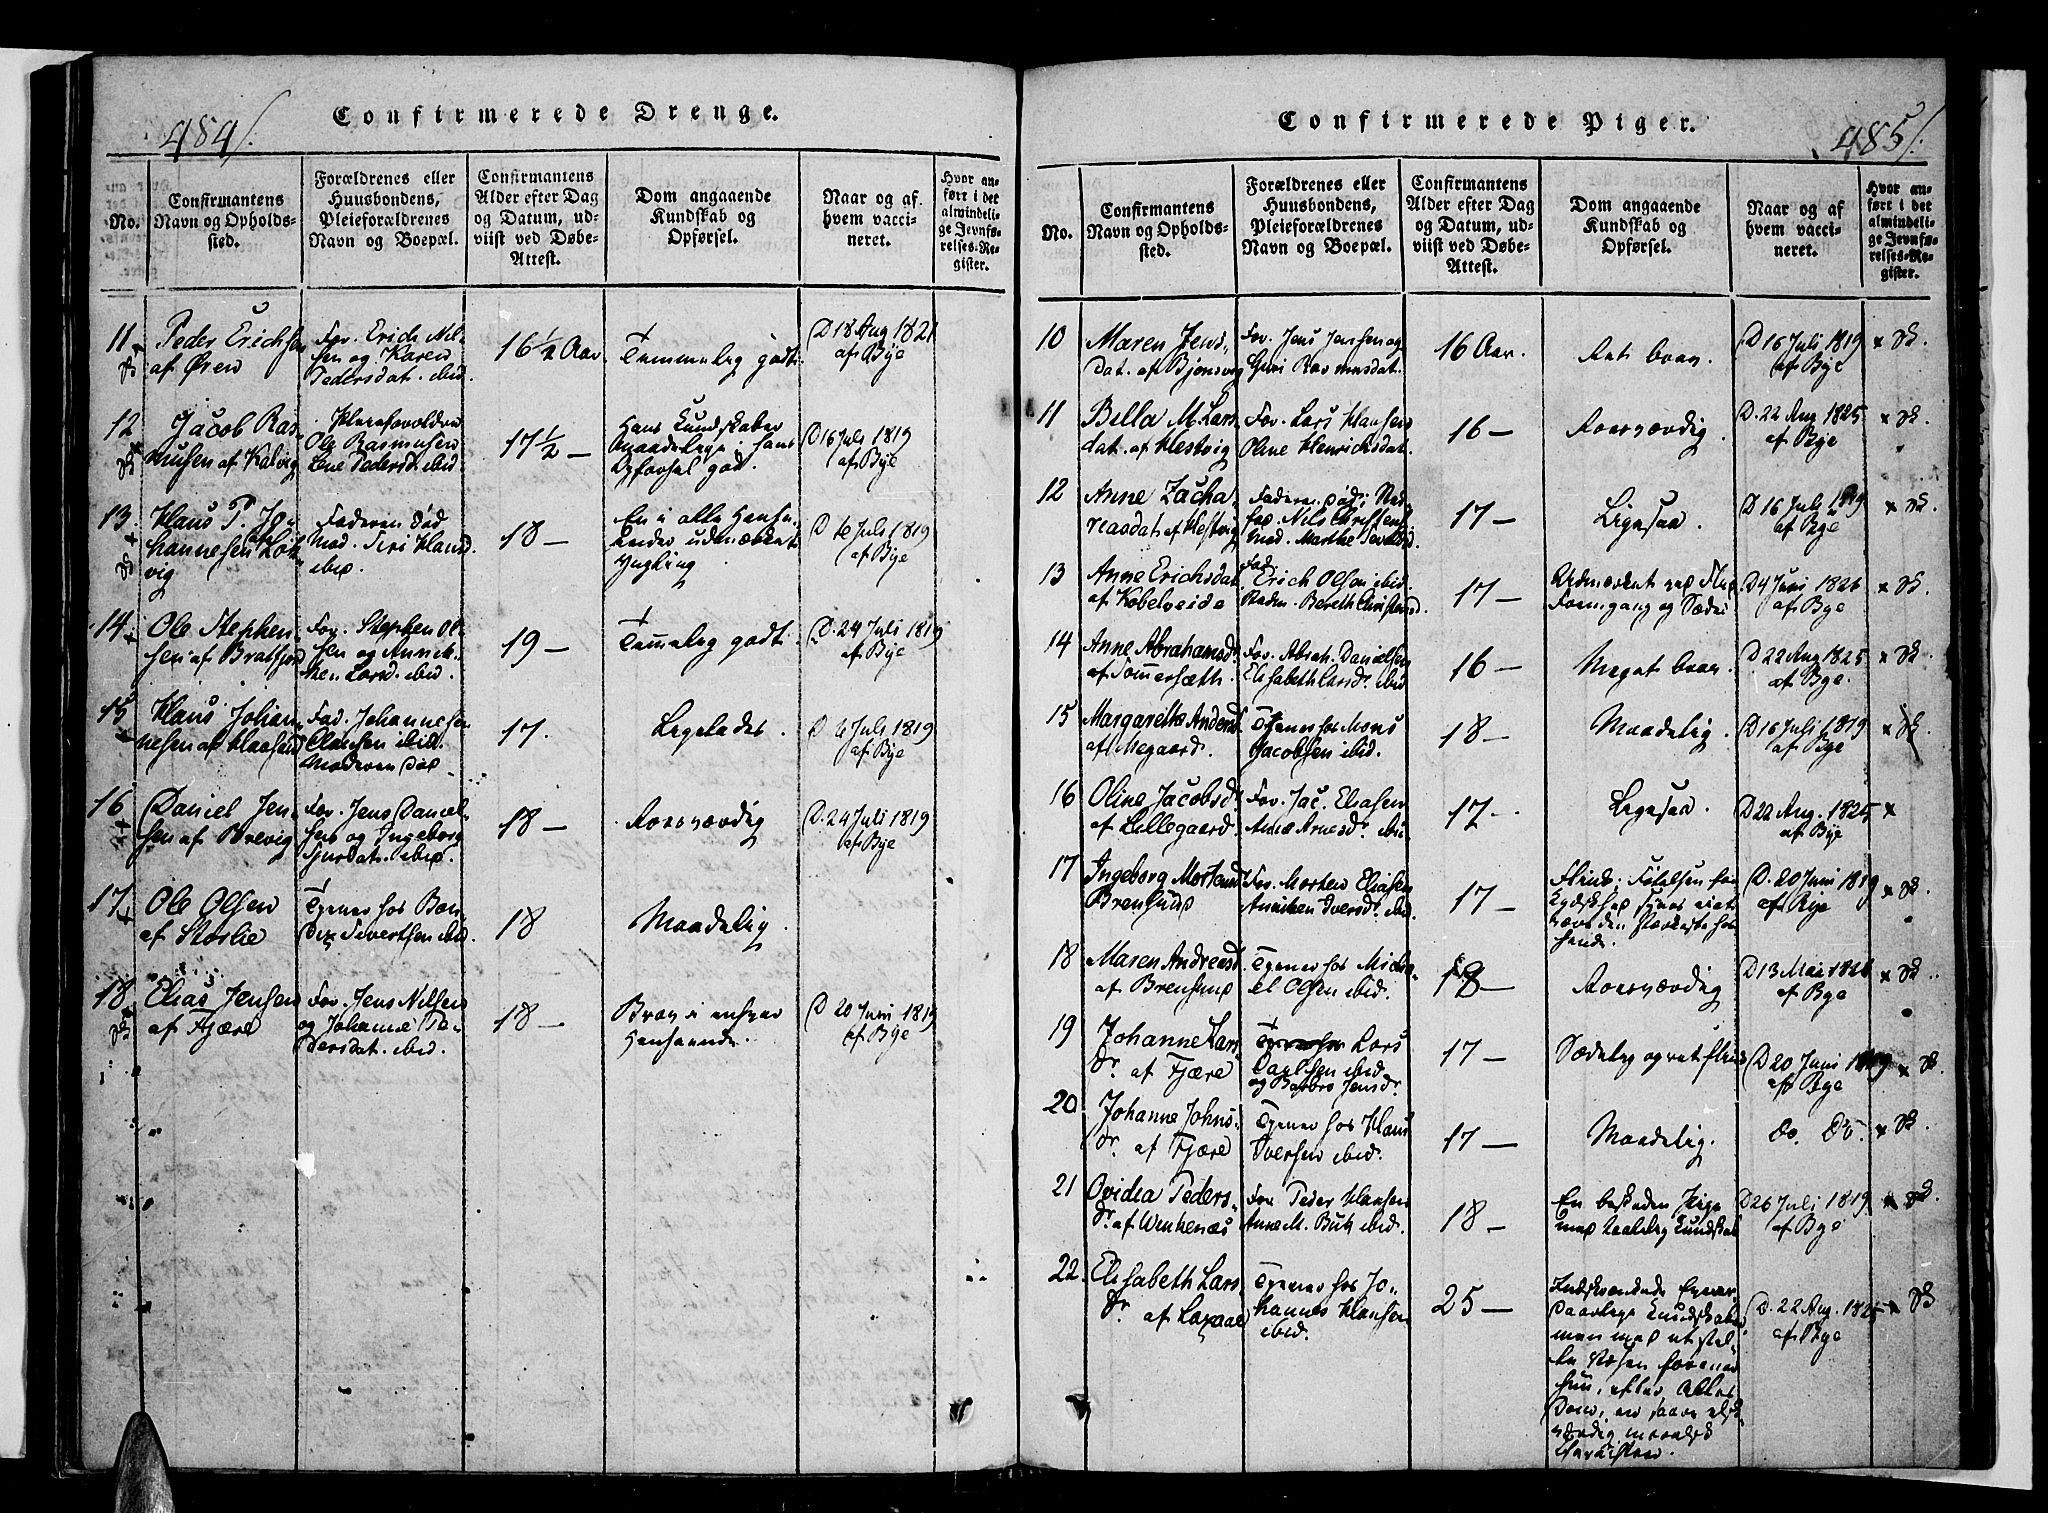 484/.
Confirmerede Drenge.
No.
Confirmantens
Navn og Opholds-
sted.
Forældrenes eller
Huusbondens,
Pleieforældrenes
Navn og Boepæl.
Confirmantens
Alder efter Dag
og Datum, ud-
viist ved Døbe-
Attest.
Dom angaaende
Kundskab og
Opførsel.
Naar og af
hvem vacci-
neret.
Hvor an-
ført i det
almindeli-
ge Jevnfø-
relses-Re-
gister.
11
Peder Erichsen
af Øren
For. Erich Nil-
sen og Karen
Pedersdat. ibid.
16 1/2 Aar
Temmelig godt.
D 18 Aug 1821
af Bye
12
Jacob Ras-
musen af Kalvig
Pleieforældre
Ole Rasmusen
Lene Pedersd. ibid
17 1/2 —
Hans Kundskaber
maadelige, hans
Opførsel god.
D 16 Juli 1819
af Bye
13.
Klaus P. Jo-
hannesen Løk-
vig
Faderen død
Mod. Siri Klausd.
ibid
18 —
En i alle Hense-
ender udmærket
Yngling
D 16 Juli 1819
af Bye
14
Ole Stephen-
sen af Bratfjord
For. Stephen Ol-
sen og Annek-
ken Larsd. ibid.
19 —
Temmelig godt.
D. 24 Juli 1819
af Bye
15
Klaus Johan-
nesen af
Fad. Johannesen
Clausen ibid.
Moderen død —
17.
Ligeledes.
D 16 Juli 1819
af Bye
16
Daniel Jen-
sen af Brevig
For. Jens Daniel-
sen og Ingeborg
Sjursdat. ibid.
18 —
Roesværdig
D. 24 Juli 1819
af Bye
17.
Ole Olsen
af Storlie
Tjener hos Ben-
dix Sivertsen ibid.
18
Maadelig
18.
Elias Jensen
af Fjære
For. Jens Nilsen
og Johanne Pe-
dersdat. ibid.
18 —
Brav i enhver
Henseende.
D 20 Juni 1819
af Bye
485/.
Confirmerede Piger.
No.
Confirmantens
Navn og Opholds-
sted.
Forældrenes eller
Huusbondens,
Pleieforældrenes
Navn og Boepæl.
Confirmantens
Alder efter Dag
og Datum, ud-
viist ved Døbe-
Attest.
Dom angaaende
Kundskab og
Opførsel.
Naar og af
hvem vacci-
neret.
Hvor an-
ført i det
almindeli-
ge Jevnfø-
relses-Re-
gister.
10
Maren Jens-
dat. af Bjønsvig
For. Jens Jensen og
Guri Rasmusdat.
16 Aar.
Ret brav.
D 16 Juli 1819
af Bye
11
Bella M. Lars-
dat. af Hestvig
For. Lars Hansen
Oline Henrichsdat.
16 —
Roesværdig
D. 22 Aug. 1825
af Bye
12
Anne Zacha-
riasdat af Hestvig
Faderen død; Sted-
fad. Nils Christens.
Mod. Marthe
17 —
Ligesaa.
D 16 Juli 1819
af Bye
13
Anne Erichsdat
af Kobelveide
Fad.
Erich Olsen ibid.
Moder. Bereth Christensd.
17 —
Udmærket ved Flid
Fremgang og Sæder
D 4 Juni 1826
af Bye
14
Anne Abrahamsd.
af Sommersæth.
For. Abrah. Danielsen
Elisabeth Larsd. ibid
16 —
Meget brav
D 22 Aug 1825
af Bye.
15
Margarethe Andersd
af Megaard.
Tjener hos Mons
Jacobsen ibid.
18 —
Maadelig
D 16 Juli 1819
af Bye
16
Oline Jacobsd.
af Lillegaard.
For. Jac. Eliasen
Anne Arnesd. ibid
17 —
Ligesaa.
D 22 Aug. 1825
af Bye
17
Ingeborg Mortensd
Brensund
For. Morten Eliasen
Anniken Iversd. ibid.
17 —
Flink; Følelsen for
synes
være den stærkeste hos
hende.
D. 20 Juni 1819
af Bye
18
Maren Andreasd
af Brensund
Tjener hos Mich-
el Olsen ibid.
18 —
Roesværdig
D 13 Mai 1826
af Bye
19
Johanne Lars-
dr. af Fjære
Lars
Carlsen ibid
og Barbro Jensdr
17 —
Sædelig og ret flink
D 20 Juni 1819
af Bye
20
Johanne Johns-
dr. af Fjære
Tjener hos Klaus
Iversen ibid.
17 —
Maadelig.
do. do.
21
Ovidia Peders-
dr. af Wenkenæs
For Peder Hansen
Anne M. Butz ibid.
18 —
En beskeden Pige
med taalelig Kundskab
D 26 Juli 1819
af Bye
22.
Elisabeth Lars-
dr af Laxaae
Tjener hos Jo-
hannes Klausen
ibid.
25 —
Indskrænkede Evner
daarlige Kundskaber
men med et stil-
le Væsen forener
hun, efter
Dom, en
værdig moralsk
D. 22 Aug. 1825
af Bye